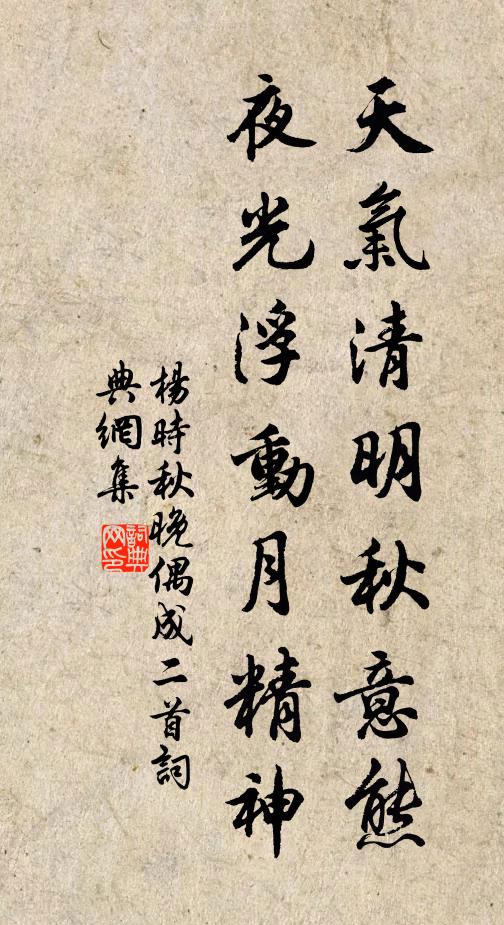 天氣清明秋意態
夜光浮動月精神
楊時秋晚偶成二首詞
典網集
詞典网印